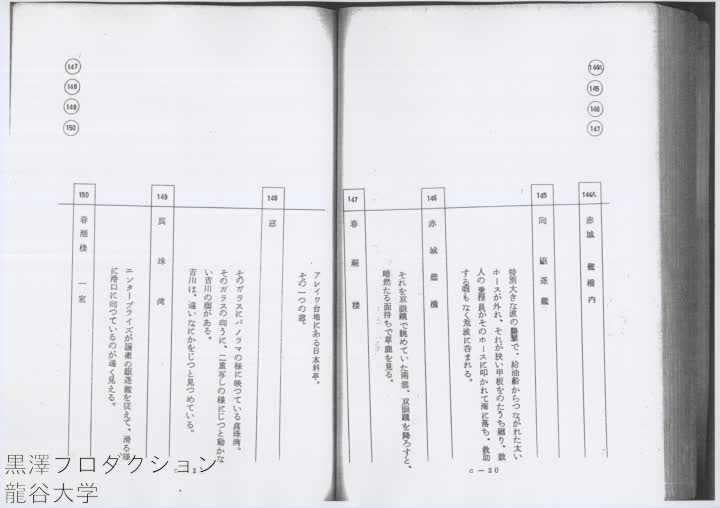 144A
145
146
147
144A 赤城 艦橋内
145 同 駆逐艦
特別大きな波の襲撃で、給油船からつながれた太い
ホースが外れ、それが狭い甲板をのたうち廻り、数
人の乗務員がそのホースに叩かれて海に落ち、救助
する暇もなく荒波に呑まれる。
146 赤城艦橋
それを双眼鏡で眺めていた南雲、双眼鏡を降ろすと、
暗然たる面持ちで草鹿を見る。
147 春潮楼
C-20
147
148
149
150
アレイワ台地にある日本料亭。
その一つの窓。
148 窓
そのガラスにパノラマの様に映つている真珠湾。
そのガラスの向うに、二重写しの様にじつと動かな
い吉川の顔がある。
吉川は、遠いなにかをじつと見つめている。
149 真珠湾
エンタープライズが護衛の駆逐艦を従えて、滑る様
に港口に向つているのが遠く見える。
150 春潮楼 一室
黒澤プロダクション
龍谷大学